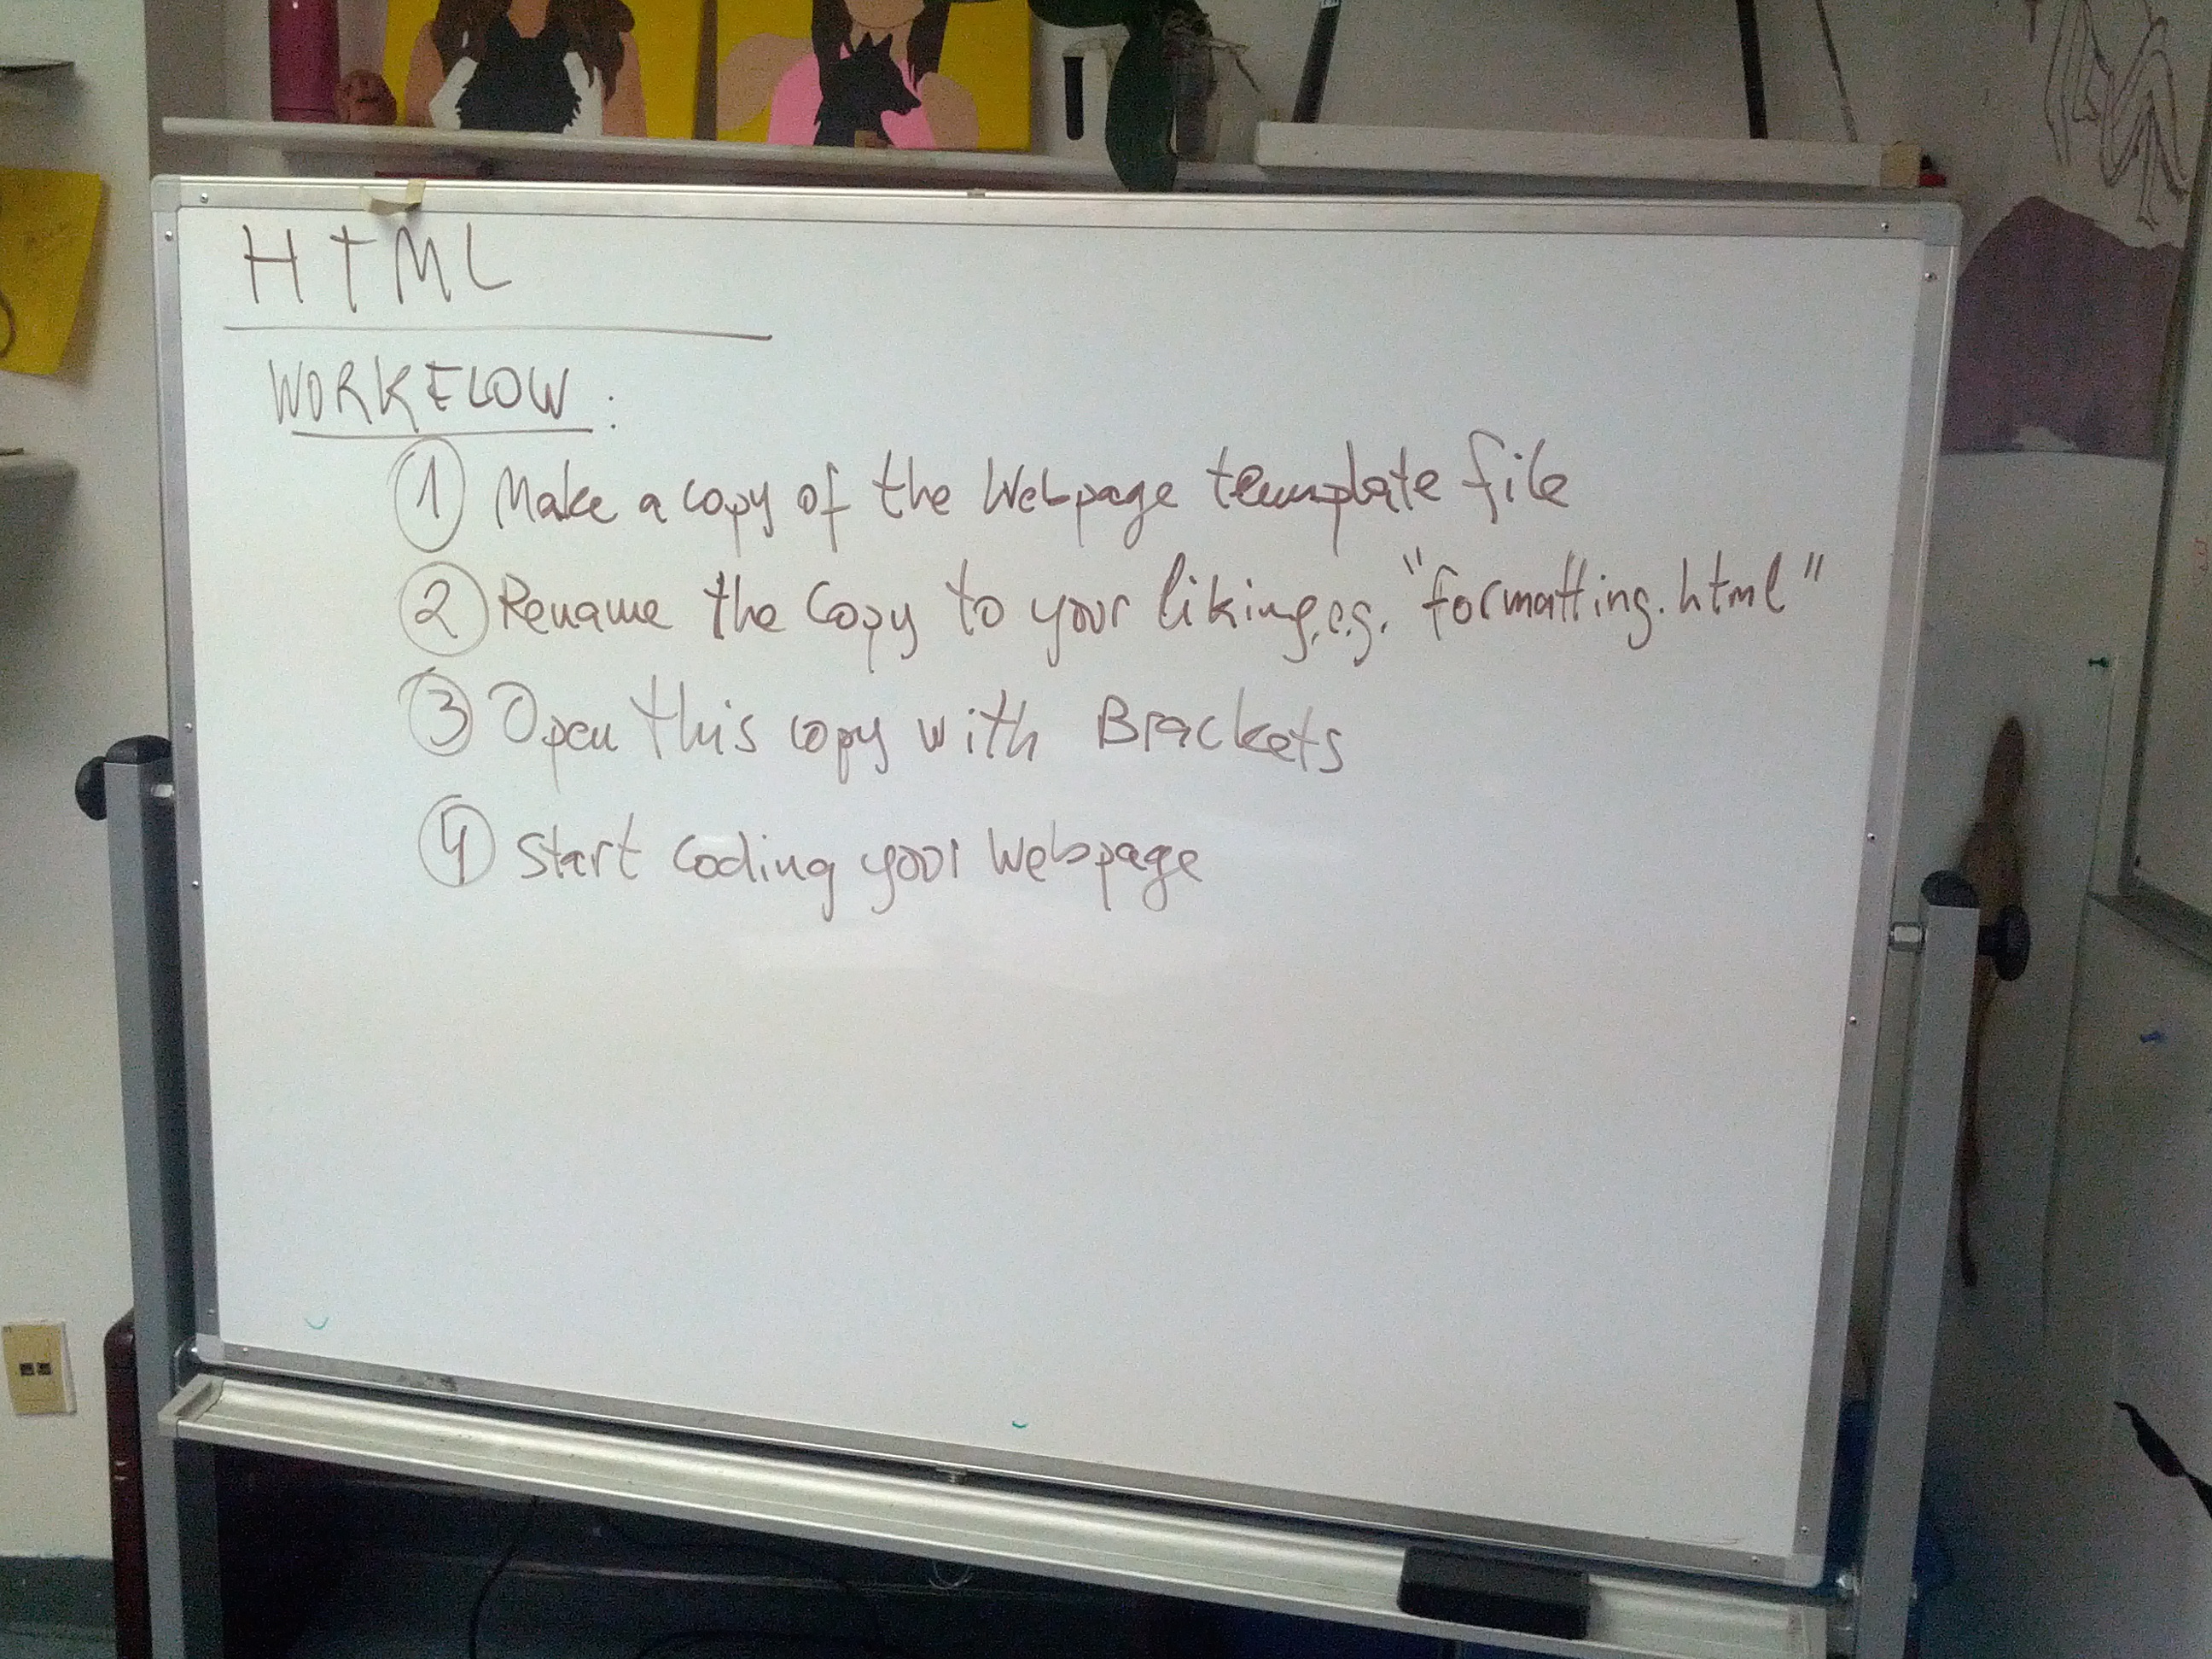 HTML
WORKFLOW:
① Make a copy of the Webpage template file
② Rename the Copy to your liking, e.g. "formatting.html"
③ Open this copy with Brackets
④ Start Coding your Webpage